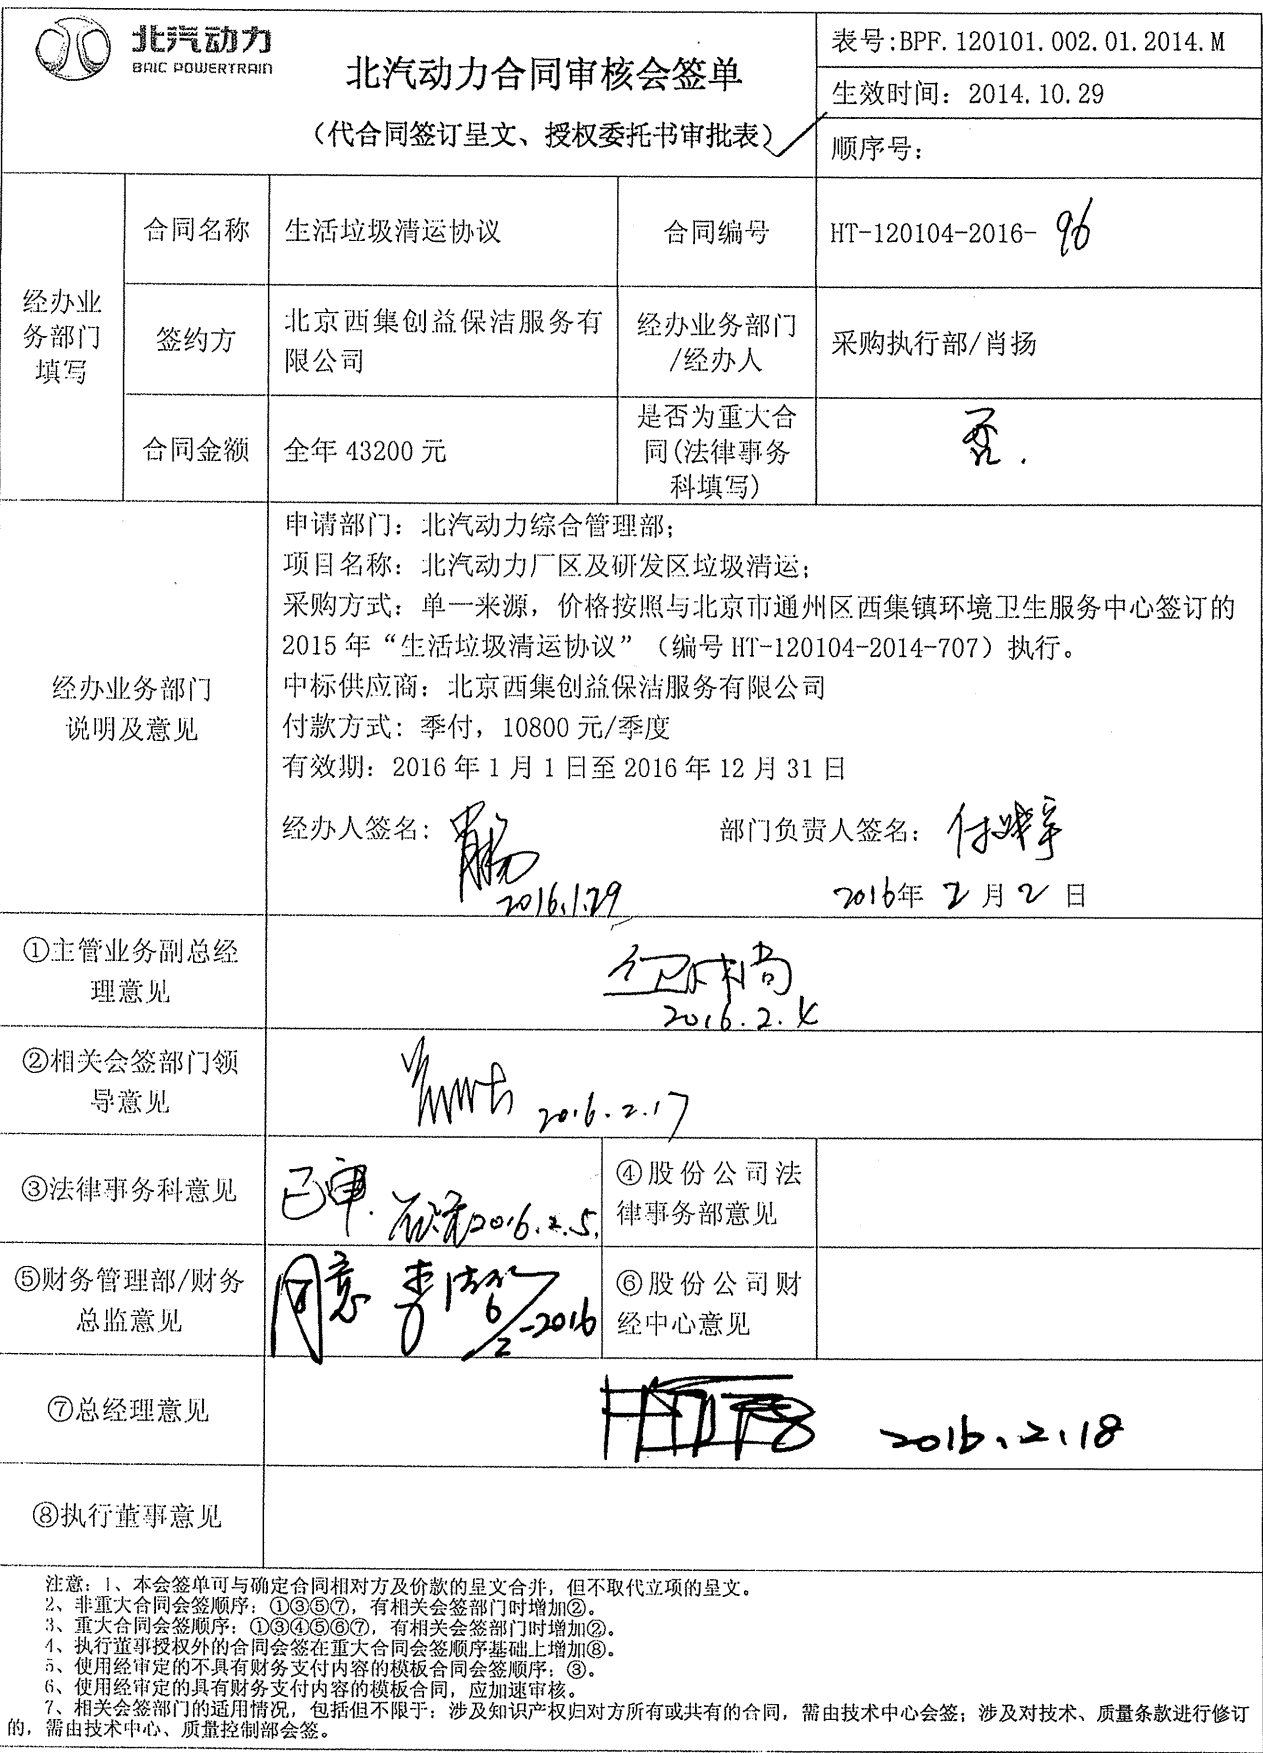 北汽动力
BAIC POWERTRAIN
北汽动力合同审核会签单
（代合同签订呈文、授权委托书审批表）
表号:BPF.120101.002.01.2014.M
生效时间：2014.10.29
顺序号：
经办业
务部门
填写
合同名称
生活垃圾清运协议
合同编号
HT-120104-2016-96
签约方
北京西集创益保洁服务有
限公司
经办业务部门
/经办人
采购执行部/肖扬
合同金额
全年 43200 元
是否为重大合
同(法律事务
科填写)
否.
经办业务部门
说明及意见
申请部门：北汽动力综合管理部；
项目名称：北汽动力厂区及研发区垃圾清运；
采购方式：单一来源，价格按照与北京市通州区西集镇环境卫生服务中心签订的
2015 年“生活垃圾清运协议”（编号 HT-120104-2014-707）执行。
中标供应商：北京西集创益保洁服务有限公司
付款方式：季付，10800 元/季度
有效期：2016 年 1 月 1 日至 2016 年 12 月 31 日
经办人签名：肖扬
2016.1.29
部门负责人签名：
2016年 2 月 2 日
①主管业务副总经
理意见
2016.2.4
②相关会签部门领
导意见
2016.2.17
③法律事务科意见
已审.
2016.2.5.
④股份公司法
律事务部意见
⑤财务管理部/财务
总监意见
同意
6/2-2016
⑥股份公司财
经中心意见
⑦总经理意见
2016.2.18
⑧执行董事意见
注意：1、本会签单可与确定合同相对方及价款的呈文合并，但不取代立项的呈文。
2、非重大合同会签顺序：①③⑤⑦，有相关会签部门时增加②。
3、重大合同会签顺序：①③④⑤⑥⑦，有相关会签部门时增加②。
4、执行董事授权外的合同会签在重大合同会签顺序基础上增加⑧。
5、使用经审定的不具有财务支付内容的模板合同会签顺序：③。
6、使用经审定的具有财务支付内容的模板合同，应加速审核。
7、相关会签部门的适用情况，包括但不限于：涉及知识产权归对方所有或共有的合同，需由技术中心会签；涉及对技术、质量条款进行修订
的，需由技术中心、质量控制部会签。